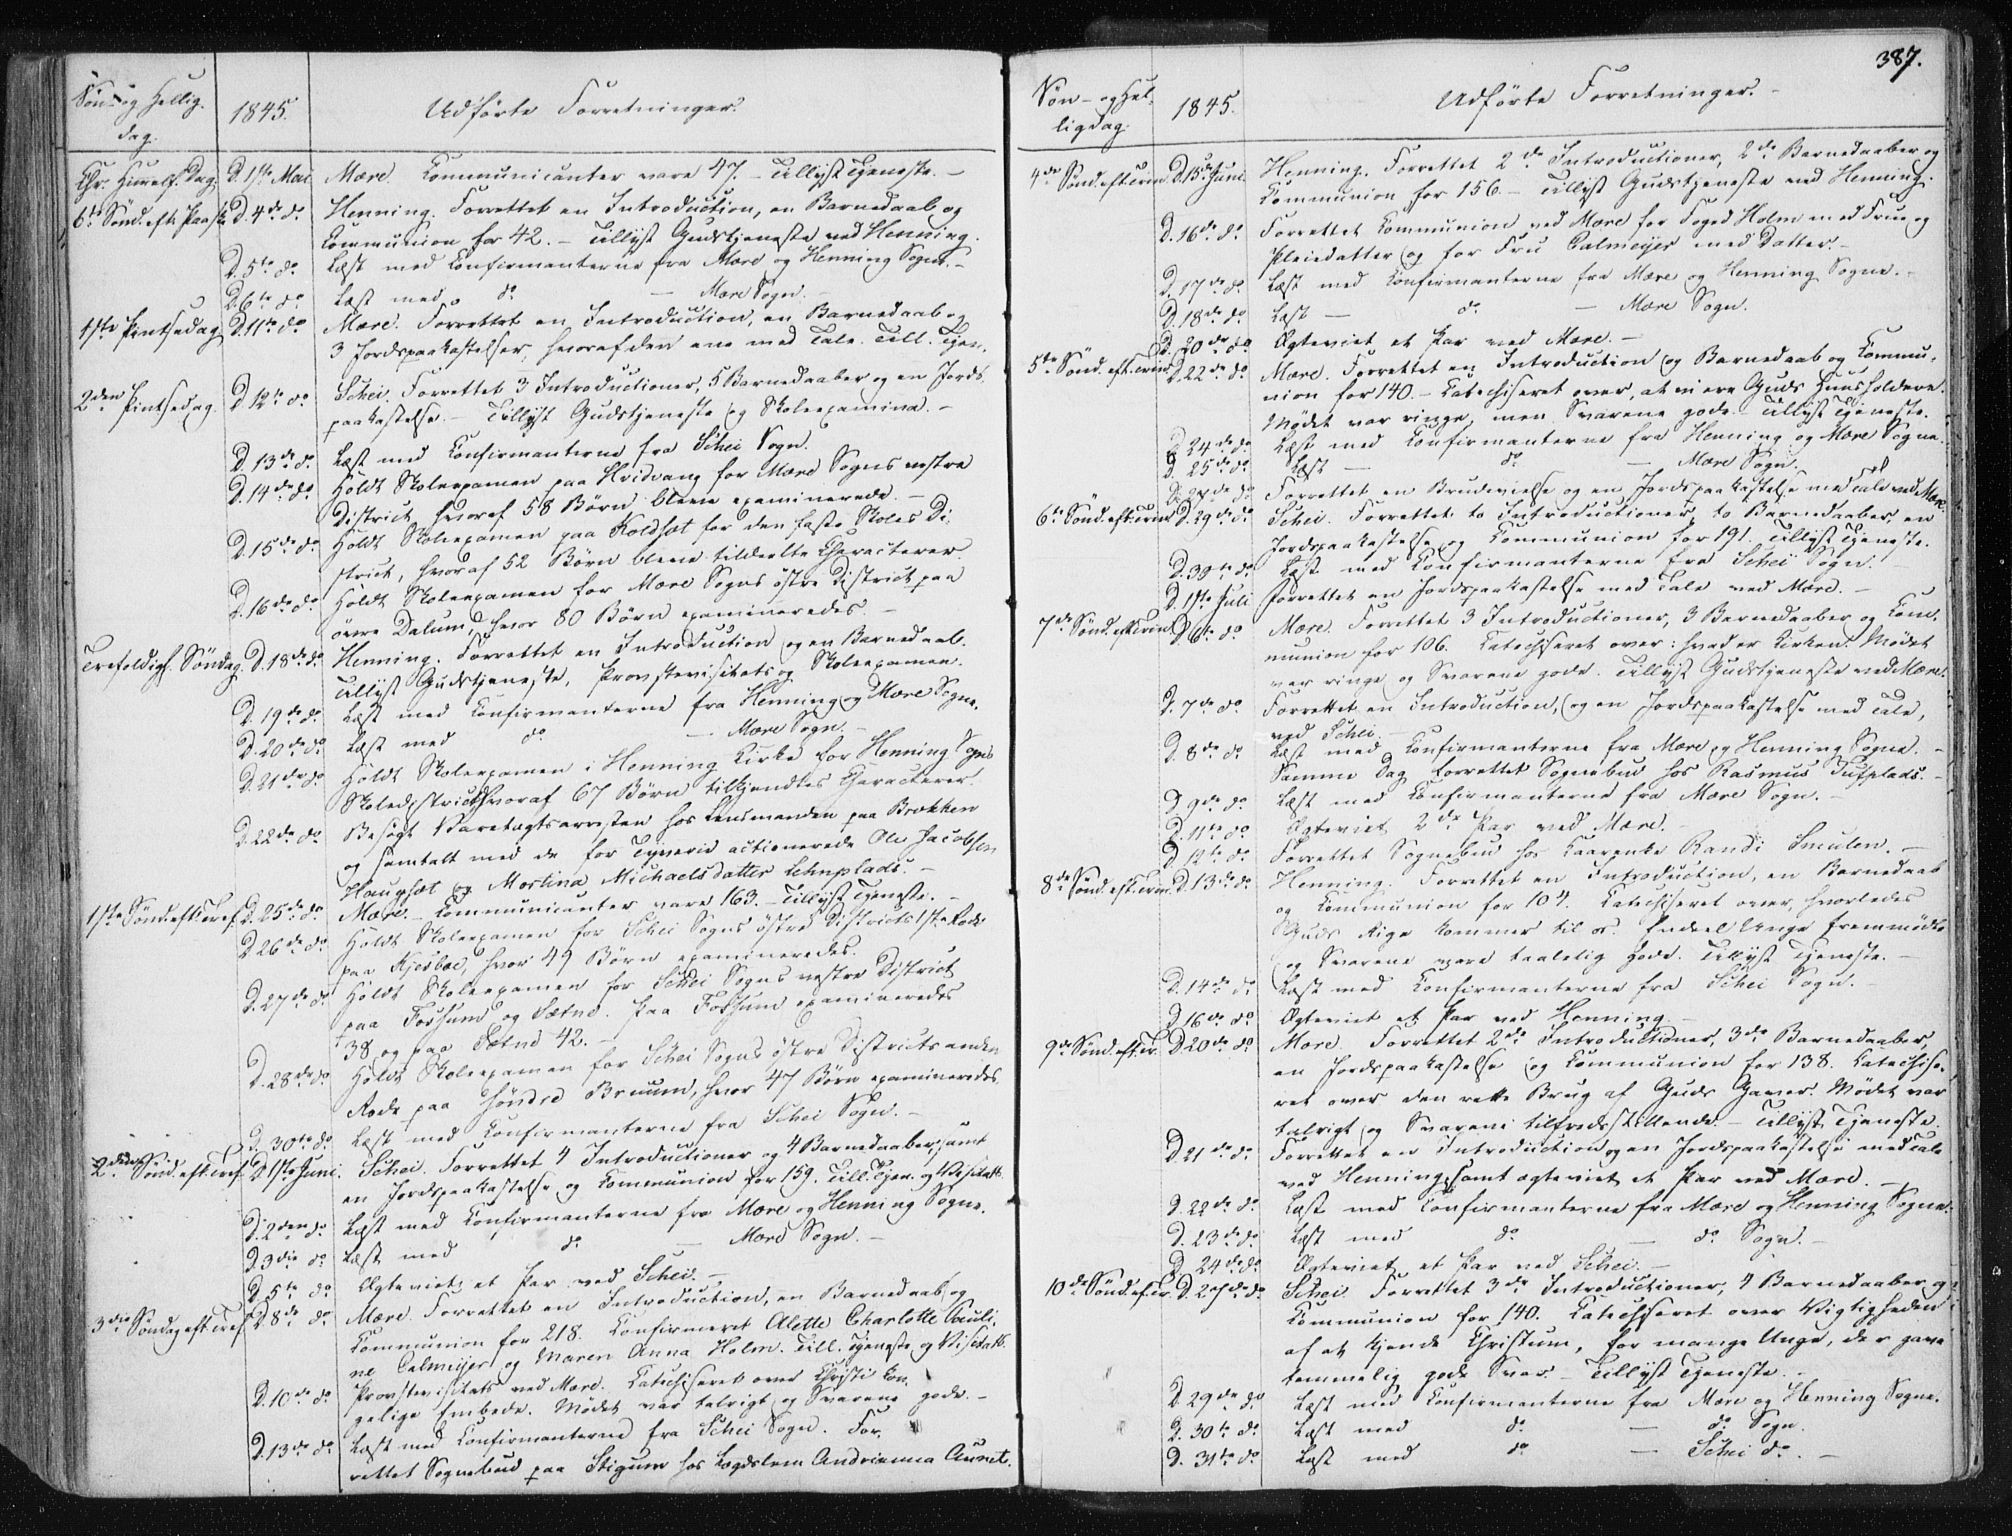 Søn- og Hellig-
dag.
1845.
Udførte Forretninger.
Chr. Himmelf. Dag. D. 1ste Mai Mære Communicanter vare 47. – Tillyst Tjeneste. –
6te Sönd. eft. Paaske D. 4de do Henning. Forrettet en Introduction, en Barnedaab og
Communion for 42. – Tillyst Gudstjeneste ved Henning.
D. 5te do Læst med Confirmanterne fra Mære og Henning Sogne. –
D. 6te do Læst med do – Mære Sogn. –
1ste Pintsedag D. 11te do Mære. Forrettet en Introduction, en Barnedaab og
3 Jordspaakastelser, hvoraf den ene med Tale. Till. Tjen.
2den Pintsedag. D. 12te do Schei. Forrettet 3 Introductioner, 5 Barnedaaber og en Jords-
paakastelse. – Tillyst Gudstjeneste og Skoleexamina. –
D. 13de do Læst med Confirmanterne fra Schei Sogn.
D. 14de do Holdt Skoleexamen paa Hvidvang for Mære Sogns vestre
District, hvoraf 58 Børn bleve examinerede. –
D. 15de do Holdt Skoleexamen paa Koldsæt for den faste Skoles Di-
strict, hvoraf 52 Børn bleve tildeelte Characterer.
D. 16de do Holdt Skoleexamen for Mære Sogns östre District paa
övre Dalum, hvor 80 Børn examineredes. –
Trefoldigh. Söndag. D. 18de do Henning. Forrettet en Introduction og en Barnedaab.
Tillyst Gudstjeneste, Provstevisitats og Skoleexamen.
D. 19de do Læst med Confirmanterne fra Henning og Mære Sogne.
D. 20de do Læst med do – Mære Sogn. –
D. 21de do Holdt Skoleexamen i Henning Kirke for Henning Sogns
Skoledistrict, hvoraf 67 Børn tilkjendtes Characterer.
D. 22de do Besøgt Varetægtsarresten hos Lensmanden paa Brækken
og samtalt med de for Tyverie actionerede Ole Jacobsen
Haugsæt og Martina Michaelsdatter Lehnplads. –
1ste Sönd. eft. Tref. D. 25de do Mære. – Communicanter vare 163. – Tillyst Tjeneste. –
D. 26de do Holdt Skoleexamen for Schei Sogns östre Districts 1ste Rode
paa Kjesboe, hvor 49 Børn examineredes.
D. 27de do Holdt Skoleexamen for Schei Sogns vestre District
paa Fossum og Sætne. Paa Fossum examineredes
38 og paa Sætne 42. –
D. 28de do Holdt Skoleexamen for Schei Sogns östre Districts anden
Rode paa söndre Bruum, hvor 47 Børn examineredes.
D. 30te do Læst med Confirmanterne fra Schei Sogn. –
2den Sönd. eft. Tref. D. 1ste Juni. Schei. Forrettet 4 Introductioner og 4 Barnedaaber, samt
en Jordspaakastelse og Communion for 159. Till. Tjen. og Visitats.
D. 2den do Læst med Confirmanterne fra Mære og Henning Sogne.
D. 3die do Læst med do – Mære Sogn. –
D. 5te do Ægteviet et Par ved Schei. –
3die Söndag eft. Tref. D. 8de do Mære. Forrettet en Introduction, en Barnedaab og
Communion for 218. Confirmeret Alette Charlotte Pauli-
ne Calmeijer og Maren Anna Holm. Till. Tjeneste og Visitats.
D. 10de do Provstevisitats ved Mære. Catechiseret over Christi Kon-
gelige Embede. Mødet var talrigt og Svarene gode. –
D. 13de do Læst med Confirmanterne fra Schei Sogn. For-
rettet Sognebud paa Stigum hos Lægdslem Andrianna Aunet.
387.
Søn- og Hel-
ligdag.
1845.
Udførte Forretninger. –
4de Sönd. eft. Trin. D. 15de Juni Henning. Forrettet 2de Introductioner, 2de Barnedaaber og
Communion for 156. – Tillyst Gudstjeneste ved Henning.
D. 16de do Forrettet Communion ved Mære for Foged Holm med Frue og
Pleiedatter og for Fru Calmeijer med Datter. –
D. 17de do Læst med Confirmanterne fra Mære og Henning Sogne. –
D. 18de do Læst – do – Mære Sogn.
D. 20de do Ægteviet et Par ved Mære. –
5te Sönd. eft. Trin. D. 22de do Mære. Forrettet en Introduction og Barnedaab og Commu-
nion for 140. – Catechiseret over, at vi ere Guds Huusholdere.
Mødet var ringe, men Svarene gode. – Tillyst Tjeneste.
D. 24de do Læst med Confirmanterne fra Henning og Mære Sogne.
D. 25de do Læst – do – Mære Sogn.
D. 27de do Forrettet en Brudevielse og en Jordspaakastelse med Tale ved Mære.
6te Sönd. eft. Trin. D. 29de do Schei. Forrettet to Introductioner, to Barnedaaber, en
Jordspaakastelse og Communion for 191. Tillyst Tjeneste.
D. 30te do Læst med Confirmanterne fra Schei Sogn. –
D. 1ste Juli Forrettet en Jordspaakastelse med Tale ved Mære. –
7de Sönd. eft. Trin. D. 6te do Mære. Forrettet 3 Introductioner, 3 Barnedaaber og Com-
munion for 106. Catechiseret over: hvad er Kirken. Mødet
var ringe og Svarene gode. Tillyst Gudstjeneste ved Mære.
D. 7de do Forrettet en Introduction, og en Jordspaakastelse med Tale,
ved Schei. –
D. 8de do Læst med Confirmanterne fra Mære og Henning Sogne. –
Samme Dag forrettet Sognebud hos Rasmus Tufplads. –
D. 9de do Læst med Confirmanterne fra Mære Sogn. –
D. 11te do Ægteviet 2de Par ved Mære. –
D. 12te do Forrettet Sognebud hos Kaarenke Randi Smulen. –
8de Sönd. eft. Trin. D. 13de do Henning. Forrettet en Introduction, en Barnedaab
og Communion for 104. Catechiseret over, hvorledes
Guds Rige kommer til os. Endeel Unge fremmødte
og Svarene vare taalelig gode. Tillyst Tjeneste. –
D. 14de do Læst med Confirmanterne fra Schei Sogn. –
D. 16de do Ægteviet et Par ved Henning. –
9de Sönd. eft. Tr. D. 20de do Mære. Forrettet 2de Introductioner, 3de Barnedaaber,
en Jordspaakastelse og Communion for 138. Catechise-
ret over den rette Brug af Guds Gaver. Mødet var
talrigt og Svarene tilfredsstillende. – Tillyst Tjeneste.
D. 21de do Forrettet en Introduction og en Jordspaakastelse med Tale
ved Henning, samt ægteviet et Par ved Mære. –
D. 22de do Læst med Confirmanterne fra Mære og Henning Sogne.
D. 23de do Læst med do – do Sogn. –
D. 24de do Ægteviet et Par ved Schei. –
10de Sönd. eft. Tr. D. 27de do Schei. Forrettet 3de Introductioner, 4 Barnedaaber og
Communion for 140. Catechiseret over Vigtigheden
af at kjende Christum, for mange Unge, der gave
temmelig gode Svar. – Tillyst Tjeneste. –
D. 29de do Læst med Confirmanterne fra Mære og Henning Sogne.
D. 30te do Læst med do – do Sogn.
D. 31te do Læst med do – Schei do. –